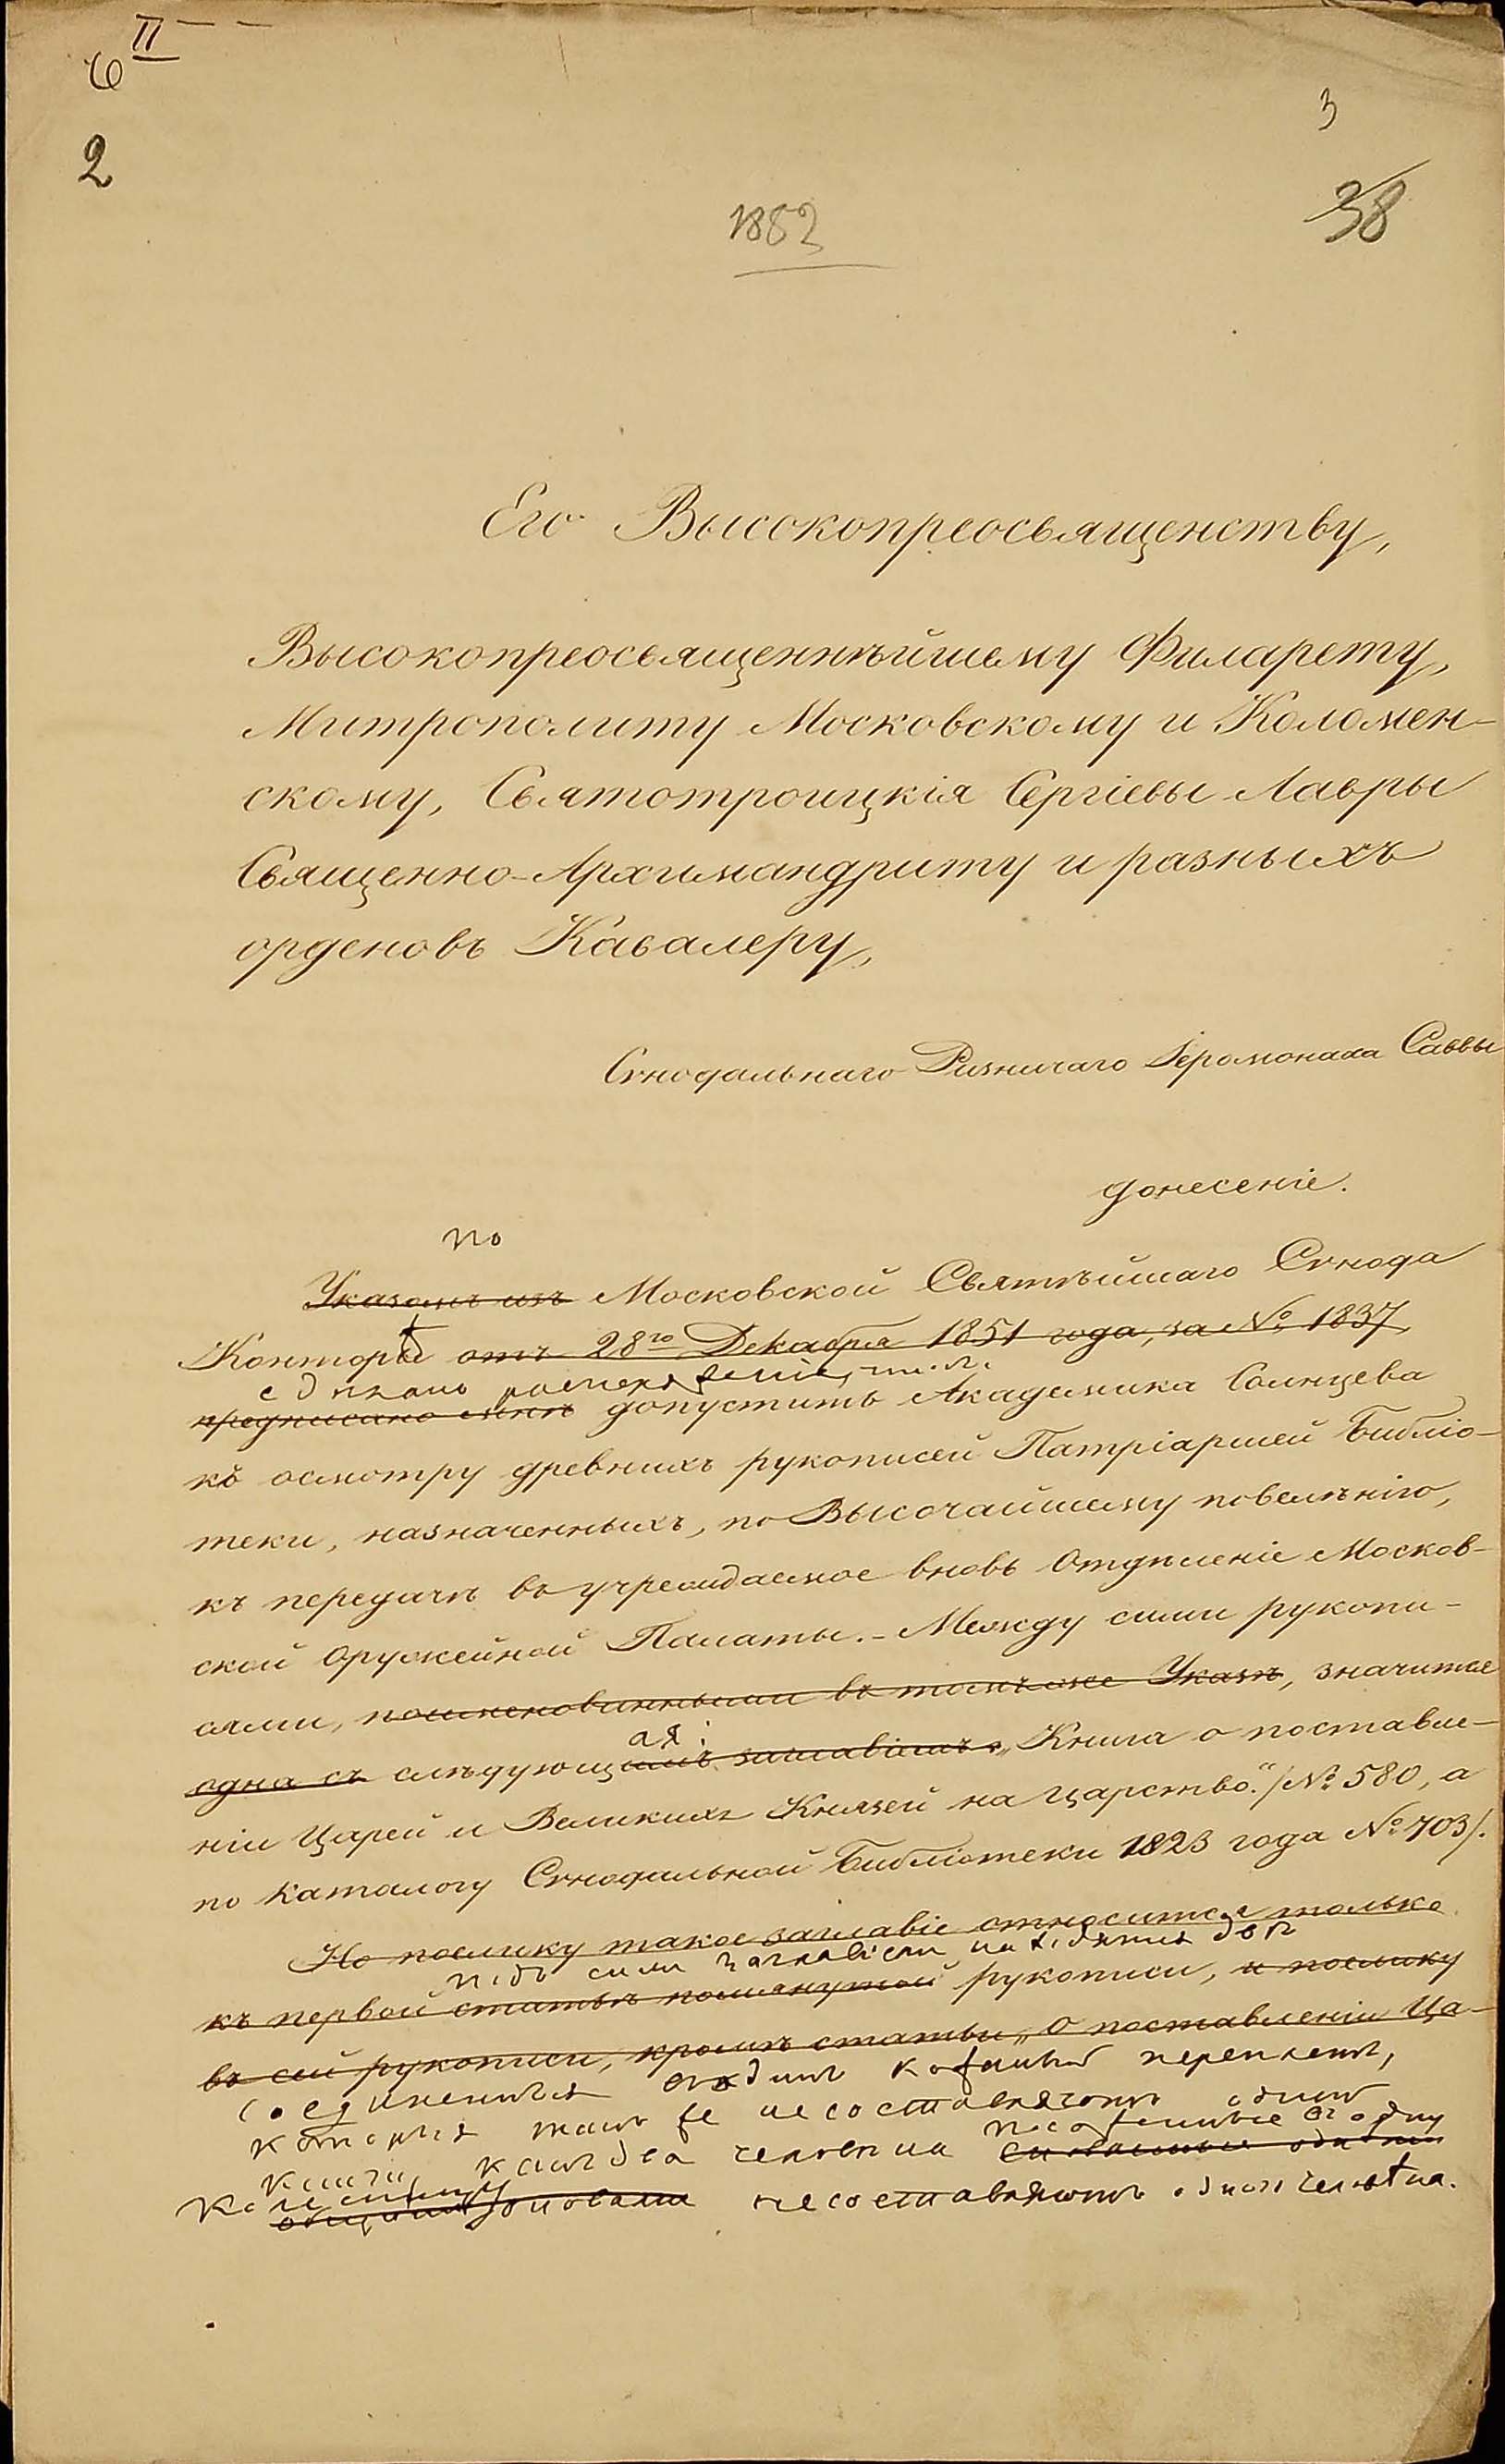 II
6
2
3
38
1852
Его Высокопреосвященству,
Высокопреосвященнѣйшему Филарету,
Митрополиту Московскому и Коломен-
скому, Святотроицкія Сергіевы Лавры
Священно-Архимандриту и разныхъ
орденовъ Кавалеру,
Сѵнодальнаго Ризничаго Іеромонаха Саввы
донесеніе.
по
Указомъ изъ Московской Святѣйшаго Сѵнода
Конторы отъ 28го Декабря 1851 года, за № 1837,
сдѣлано
предписано мнѣ допустить Академика Солнцева
къ осмотру древнихъ рукописей Патріаршей Библіо-
теки, назначенныхъ, по Высочайшему повелѣнію,
къ передачѣ въ учреждаемое вновь Отдѣленіе Москов-
ской Оружейной Палаты. - Между сими рукопи-
сями, поименованными въ томъ же Указѣ, значится
ая:
одна съ слѣдующимъ заглавіемъ: „Книга о поставле-
ніи Царей и Великихъ Князей на царство." /№ 580, а
по каталогу Сѵнодальной Библіотеки 1823 года № 703/.
Но поелику такое заглавіе относится только
подъ симъ заглавіемъ находятся двѣ
къ первой статьѣ помянутой рукописи, и поелику
въ сей рукописи, кромѣ статьи „О поставленіи Ца-
соединенныя въ одинъ кожаный переплетъ,
которыя такъ же не составляютъ одной
книги, какъ два человѣка
не составляютъ одного человѣка.